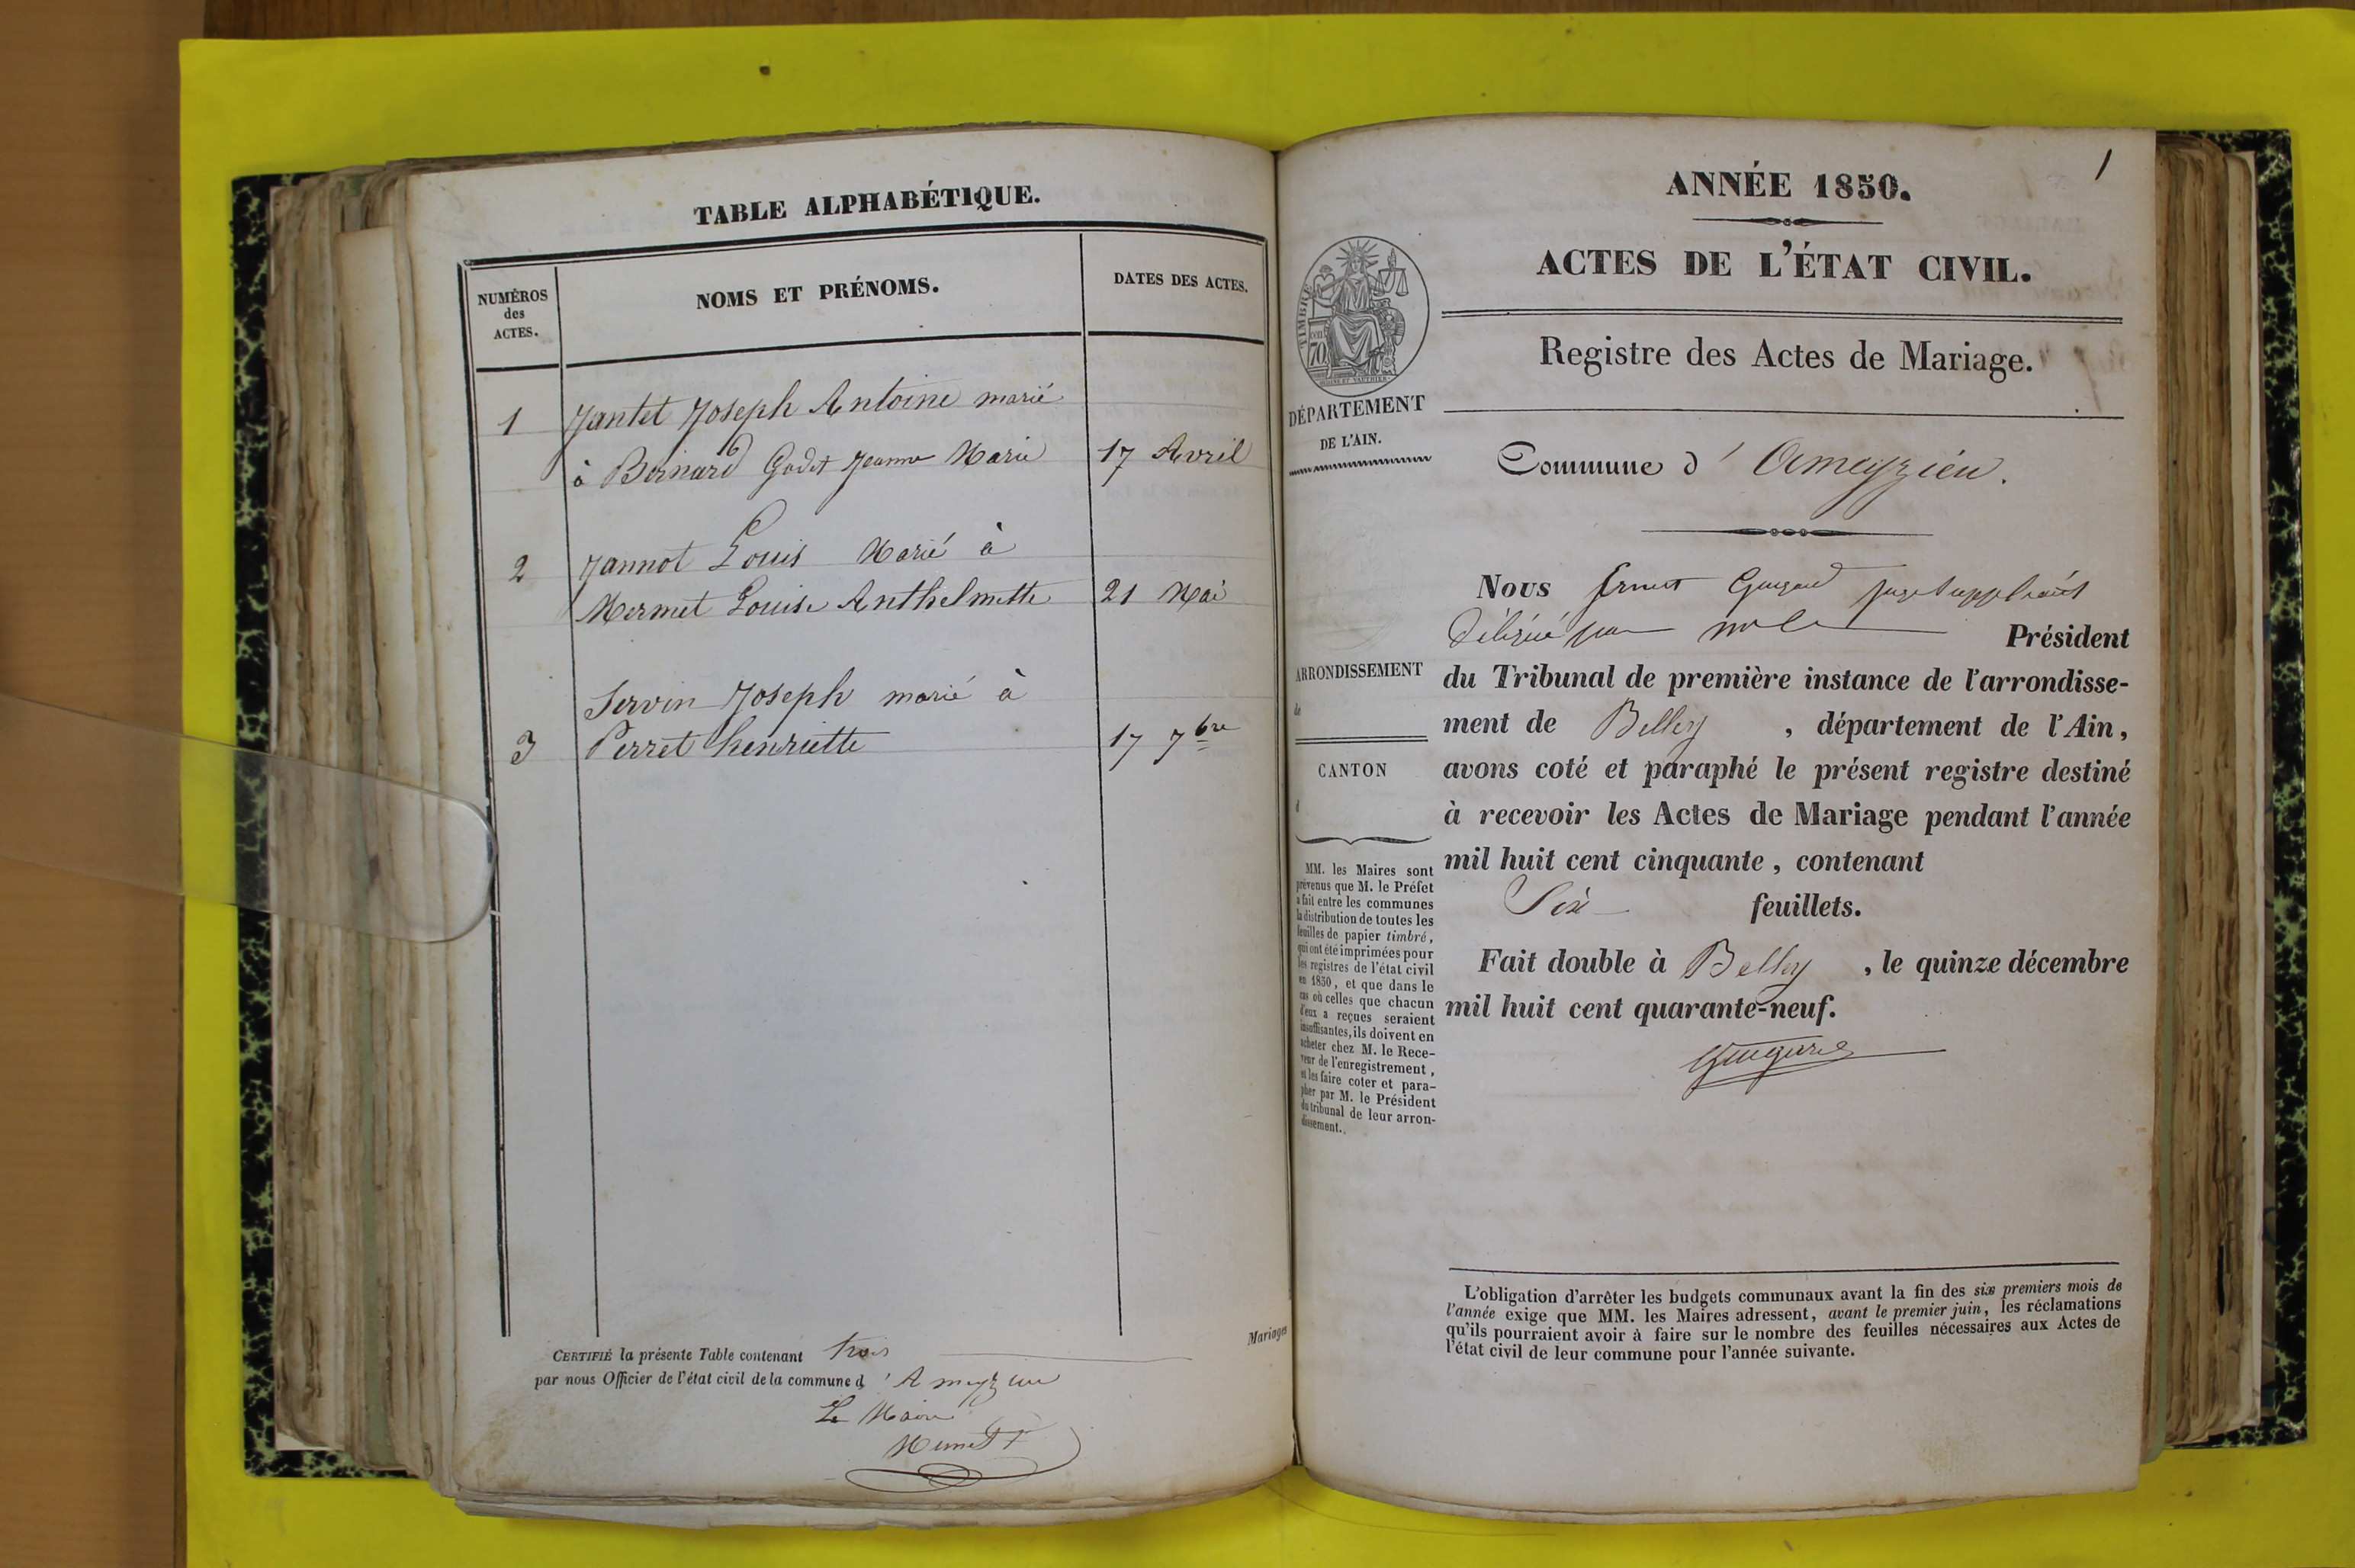 TABLE ALPHABÉTIQUE.
NUMÉROS
des
ACTES.
NOMS ET PRÉNOMS.
DATES DES ACTES.
1 Jantet Joseph Antoine marié
à Bernard Godet Jeanne Marie 17 Avril
2 Jannot Louis Marié à
Mermet Louise Anthelmette 21 Mai
Servin Joseph marié à
3 Perret henriette 17 7bre
Mariages
CERTIFIÉ la présente Table contenant trois
par nous Officier de l'état civil de la commune d'Ameyzieu
Le Maire
1
ANNÉE 1850.
ACTES DE L'ÉTAT CIVIL.
Registre des Actes de Mariage.
TIMBRE
70
DÉPARTEMENT
DE L'AIN.
Commune d'Ameyzieu.
Nous Ernest juge Suppléant
Délégué par Mr le Président
ARRONDISSEMENT
de
du Tribunal de première instance de l'arrondisse-
ment de Belley, département de l'Ain,
CANTON
d
avons coté et paraphé le présent registre destiné
à recevoir les Actes de Mariage pendant l'année
mil huit cent cinquante, contenant
Six feuillets.
Fait double à Belley, le quinze décembre
mil huit cent quarante-neuf.
MM. les Maires sont
prévenus que M. le Préfet
a fait entre les communes
la distribution de toutes les
feuilles de papier timbré,
qui ont été imprimées pour
les registres de l'état civil
en 1850, et que dans le
cas où celles que chacun
d'eux a reçues seraient
insuffisantes, ils doivent en
acheter chez M. le Rece-
veur de l'enregistrement,
et les faire coter et para-
pher par M. le Président
du tribunal de leur arron-
dissement.
L'obligation d'arrêter les budgets communaux avant la fin des six premiers mois de
l'année exige que MM. les Maires adressent, avant le premier juin, les réclamations
qu'ils pourraient avoir à faire sur le nombre des feuilles nécessaires aux Actes de
l'état civil de leur commune pour l'année suivante.